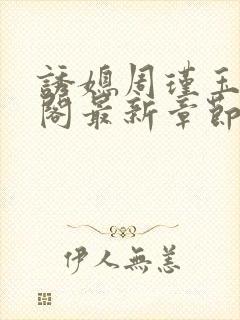 誘媳周瑾玉
閣最新章節
伊人無恙